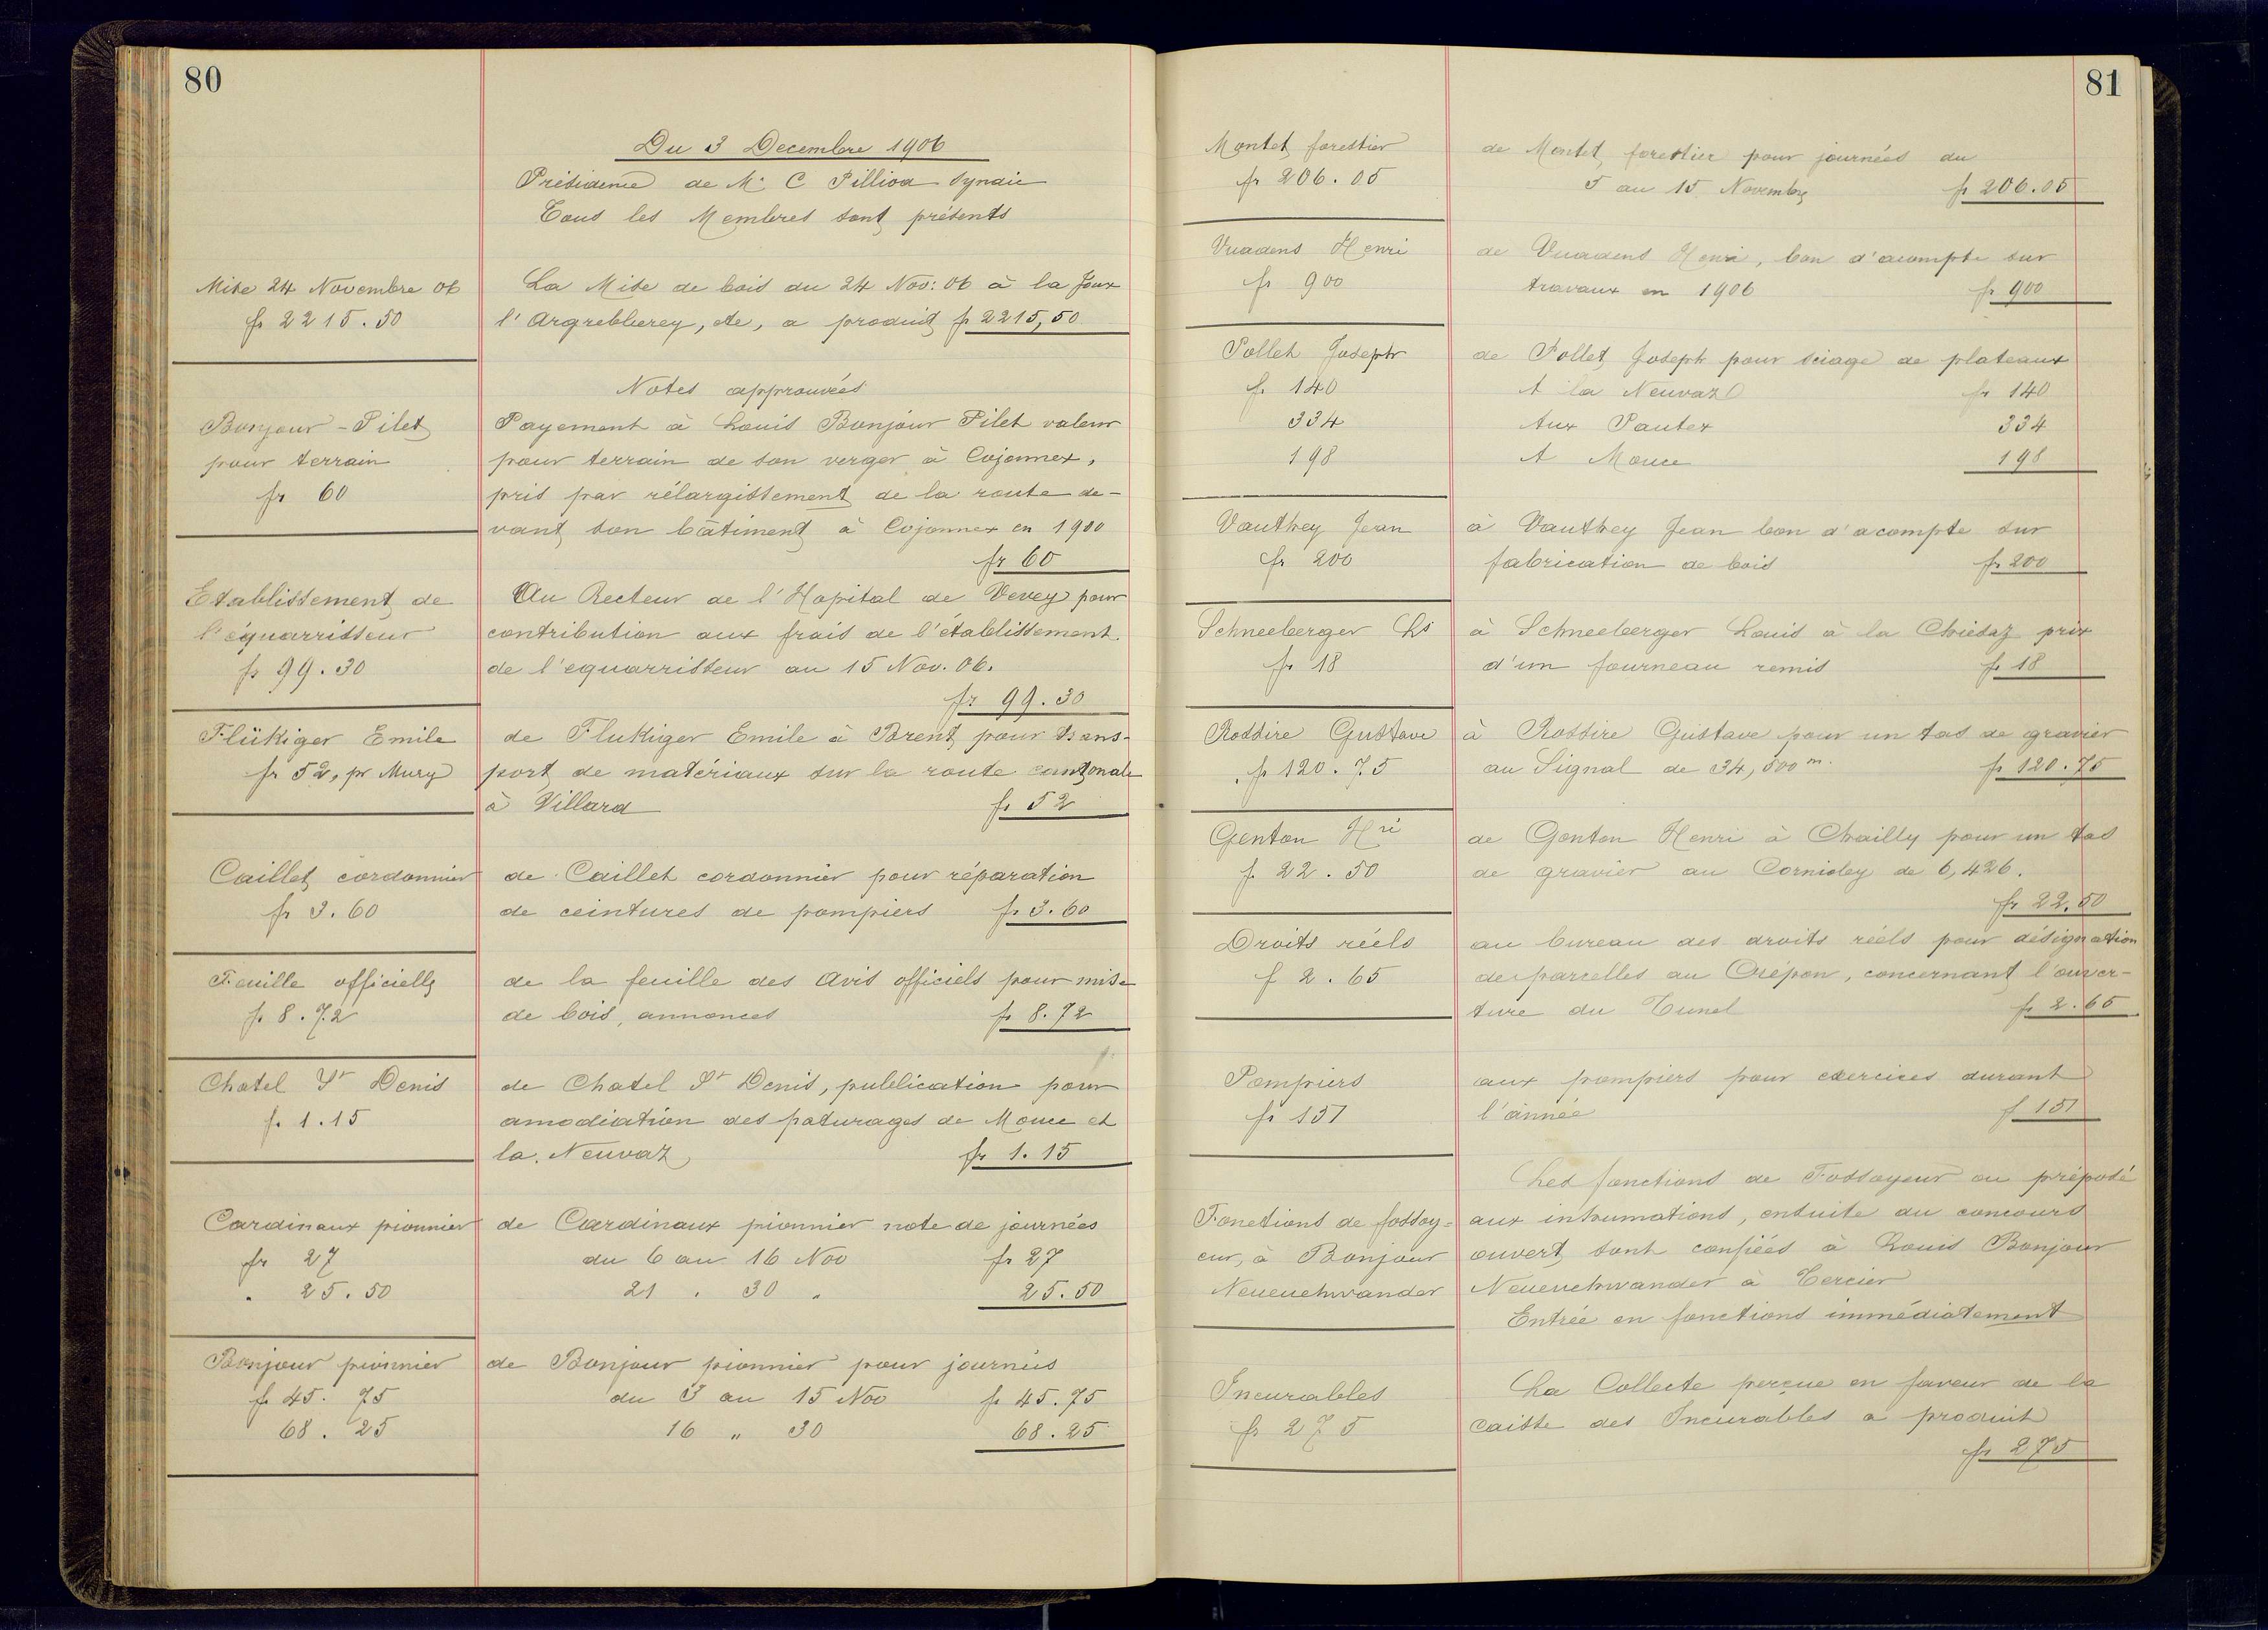 80
Du 3 Decembre 1906
Présidence de Mr C Pilliod Syndic
Tous les Membres sont présents
Mise 24 Novembre 06
fr 2215.50
La Mise de bois du 24 Nov: 06 à la Joux
l'Argrebberey, etc, a produit fr 2215,50
Notes approuvées
Bonjour - Pilet
pour terrain
fr 60
Payement à Louis Bonjour Pilet valeur
pour terrain de son verger à Cojonnex,
pris par rélargissement de la route de-
vant son bâtiment à Cojonnex en 1900
fr 60
Etablissement de
l'équarrisseur
fr 99.30
Au Recteur de l'Hopital de Vevey pour
contribution aux frais de l'établissement
de l'equarrisseur au 15 Nov. 06.
fr 99.30
Flükiger Emile
fr 52, pr Mury
de Flukiger Emile à Brent pour trans-
port de matériaux sur la route cantonale
à Villard fr 52
Caillet cordonnier
fr 3.60
de Caillet cordonnier pour réparation
de ceintures de pompiers fr 3.60
Feuille officielle
fr 8.72
de la feuille des Avis officiels pour mise
de bois, annonces fr 8.72
Chatel St Denis
fr 1.15
de Chatel St Denis, publication pour
amodiation des paturages de Mouce et
la Neuvaz fr 1.15
Cardinaux pionnier
fr 27
" 25.50
de Cardinaux pionnier note de journées
du 6 au 16 Nov fr 27
21 " 30 " 25.50
Bonjour pionnier
fr 45.75
68.25
de Bonjour pionnier pour journées
du 3 au 15 Nov fr 45.75
16 " 30 68.25
81
Montet forestier
fr 206.05
de Montet forestier pour journées du
5 au 15 Novembre fr 206.05
Vuadens Henri
fr 900
de Vuadens Henri, bon d'acompte sur
travaux en 1906 fr 900
Pollet Joseph
fr 140
334
198
de Pollet Joseph pour sciage de plateaux
A la Neuvaz fr 140
Aux Pautex 334
A Mouce 198
Vauthey Jean
fr 200
à Vauthey Jean bon d'acompte sur
fabrication de bois fr 200
Schneeberger Ls
fr 18
à Schneeberger Louis à la Chiésaz prix
d'un fourneau remis fr 18
Rossire Gustave
fr 120.75
à Rossire Gustave pour un tas de gravier
au Signal de 34,500 m. fr 120.75
Genton Hri
f. 22.50
de Genton Henri à Chailly pour un tas
de gravier au Cornioley de 6,426.
fr 22.50
Droits réels
f 2.65
au bureau des droits réels pour désignation
des parcelles au Crépon, concernant l'ouver-
ture du Tunel fr 2.65
Pompiers
fr 151
aux pompiers pour exercices durant
l'année f 151
Fonctions de fossoy-
eur, à Bonjour
Neuenchwander
Les fonctions de Fossoyeur ou préposé
aux inhumations, ensuite du concours
ouvert sont confiées à Louis Bonjour
Neuenchwander à Tercier
Entrée en fonctions immédiatement
Incurables
fr 275
La Collecte perçue en faveur de la
caisse des Incurables a produit
fr 275